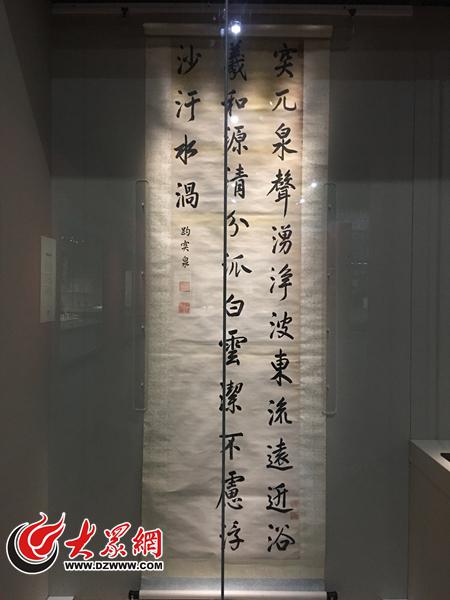 突兀泉聲湧淨波東流遠近浴
羲和源清分派白雲潔不慮浮
沙汙水渦
趵突泉
大眾網
WWW.DZWWW.COM